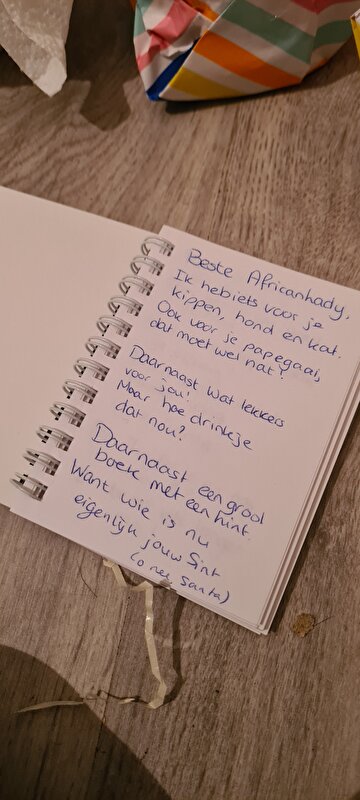 Beste Africanhady,
Ik heb iets voor je
kippen, hond en kat.
Ook voor je papegaai,
dat moet wel hat!
Daarnaast wat lekkers
voor jou!
Maar hoe drink je
dat nou?
Daarnaast een groot
boek met een hint
Want wie is nu
eigenlijk jouw Sint
(o nee Santa)